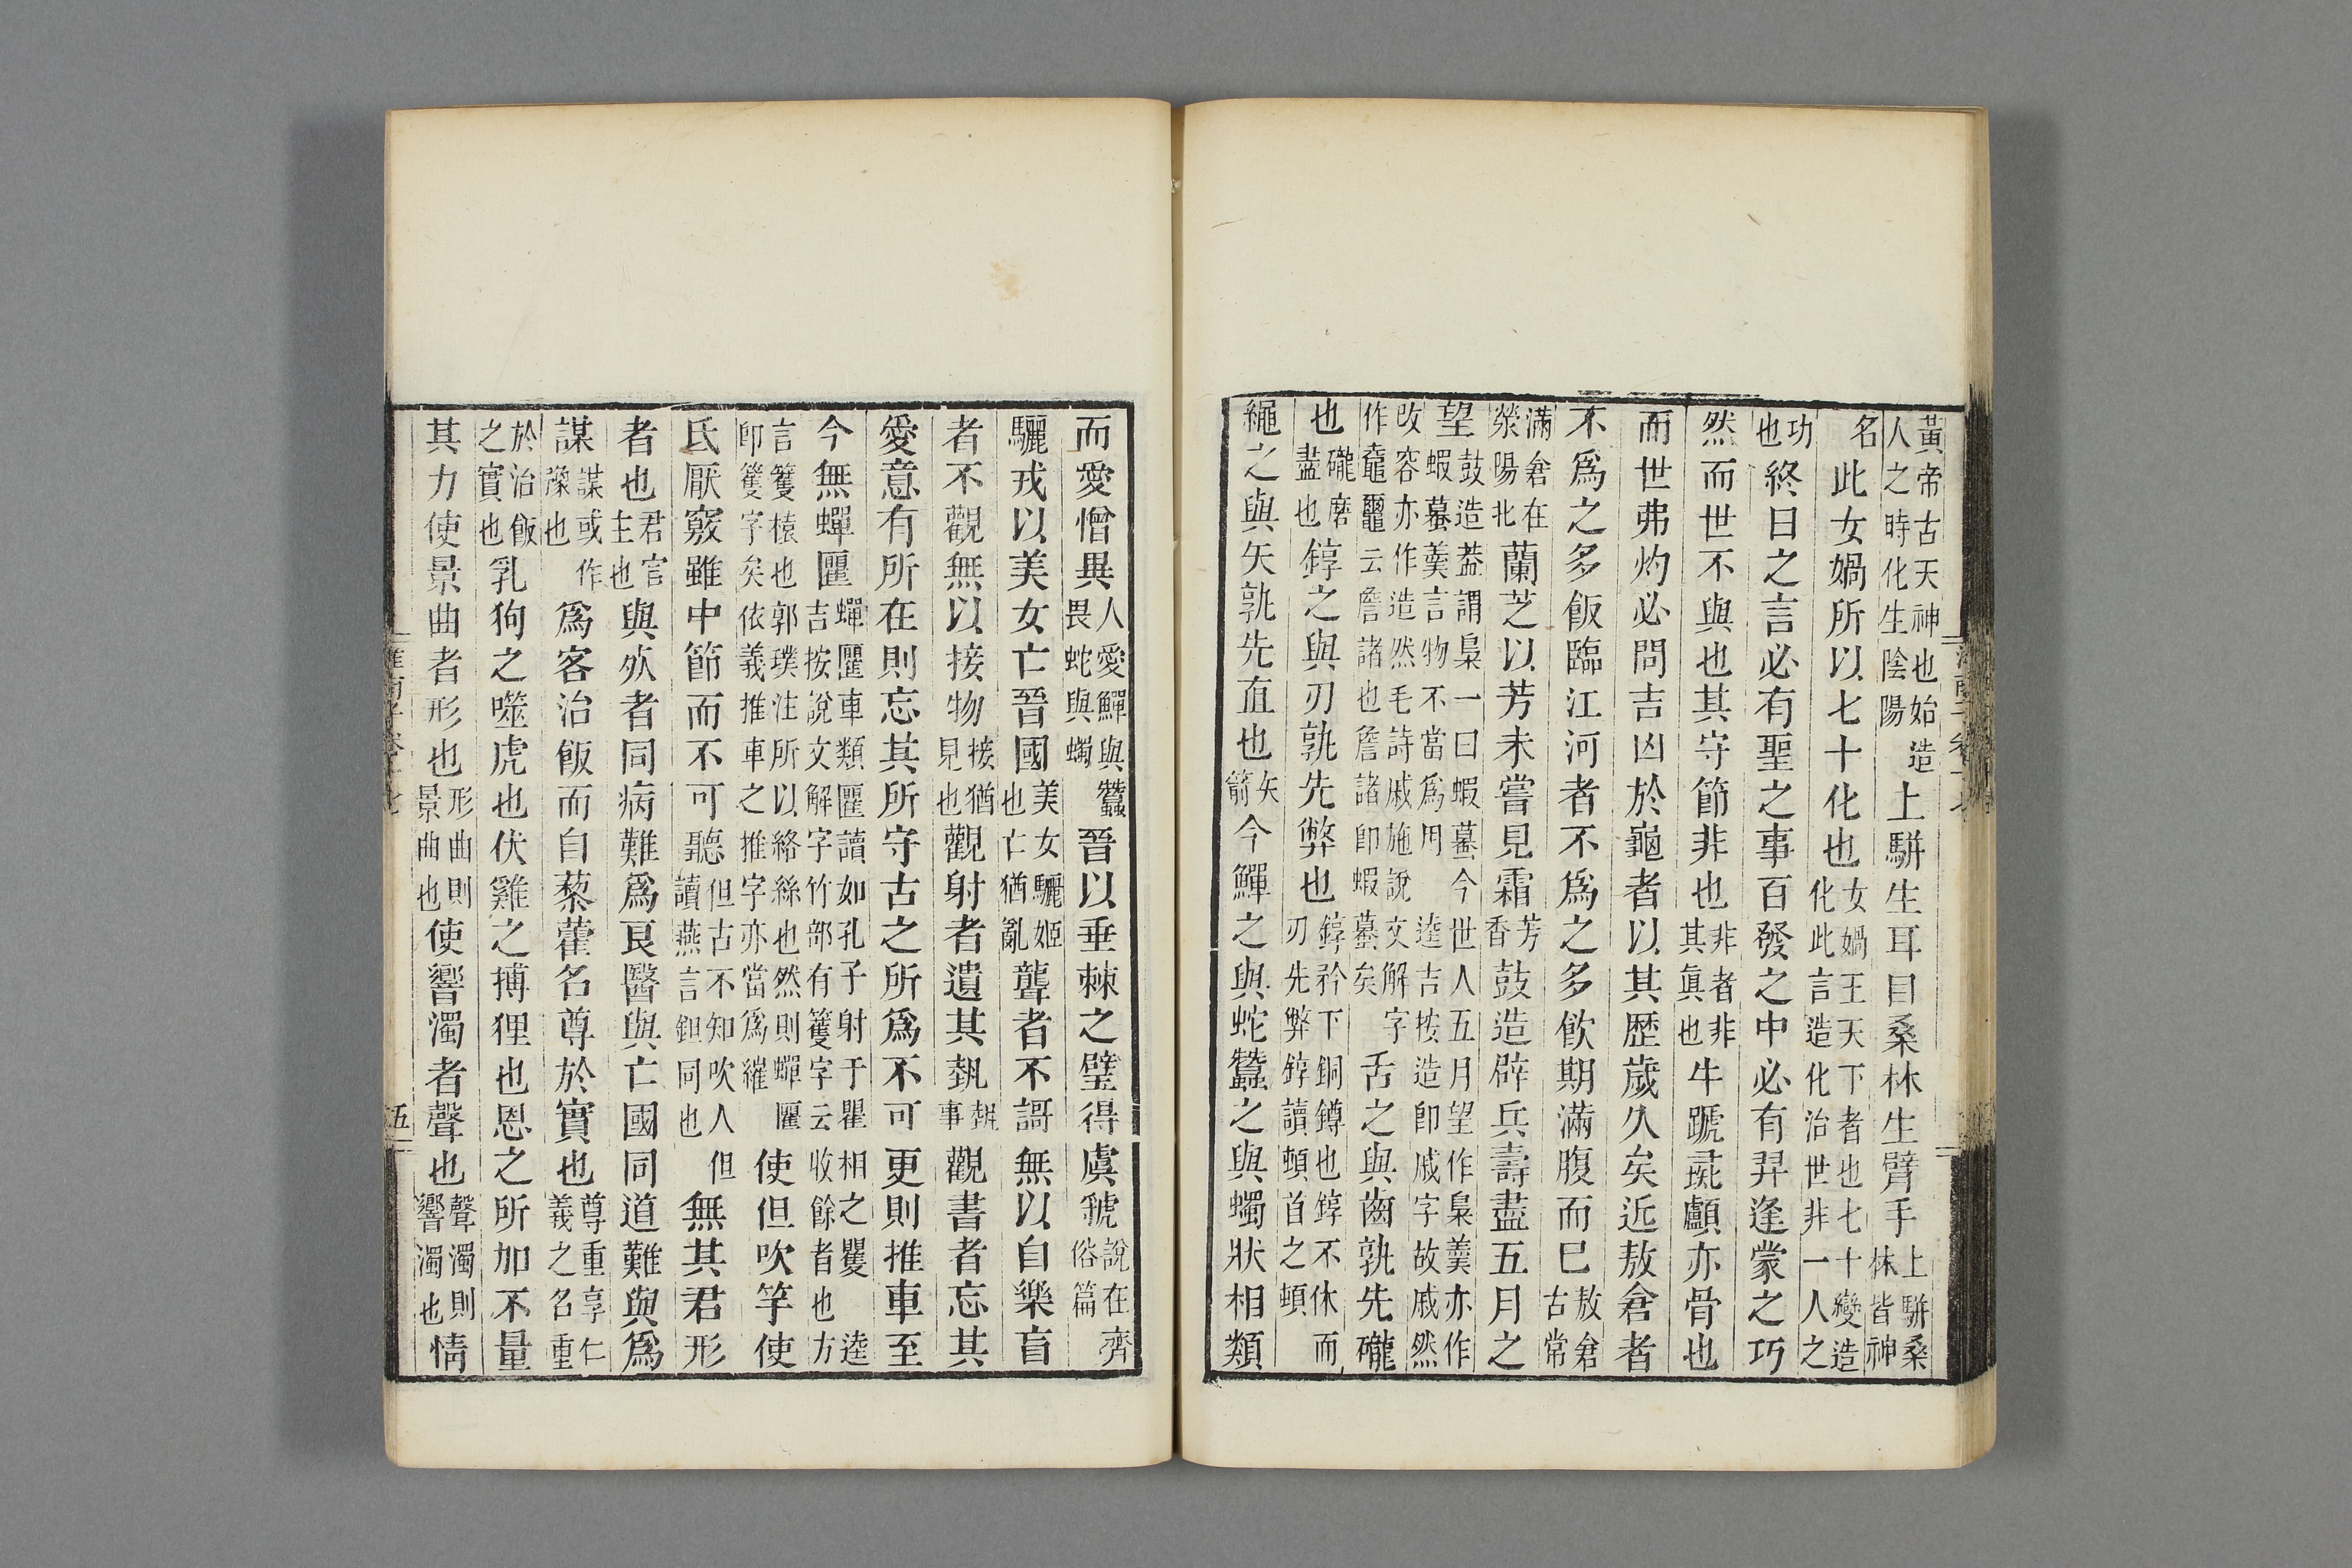 黃帝古天神也始造人之時化生陰陽上駢生耳目桑林生臂手上駢桑林皆神
名此女媧所以七十化也女媧王天下者也七十變造化此言造化治世非一人之
功也終日之言必有聖之事百發之中必有羿逢蒙之巧
然而世不與也其守節非也非者非其眞也牛蹏彘顱亦骨也
而世弗灼必問吉凶於龜者以其歷歲久矣近敖倉者
不爲之多飯臨江河者不爲之多飲期滿腹而已敖倉古常
滿倉在滎陽北蘭芝以芳未嘗見霜芳香鼓造辟兵壽盡五月之
望鼓造葢謂梟一曰蝦蟇今世人五月望作梟羹亦作蝦蟇羹言物不當爲用逵吉按造卽戚字故戚然
改容亦作造然毛詩戚施說文解字作𪓰𪓿云詹諸也詹諸卽蝦蟇矣舌之與齒孰先礲
也礲磨盡也錞之與刃孰先弊也錞矜下銅鐏也錞不休而刃先弊錞讀頓首之頓
繩之與矢孰先直也矢箭今鱓之與蛇蠶之與蠋狀相類
而愛憎異人愛鱓與蠶畏蛇與蠋晉以垂棘之璧得虞虢說在齊俗篇
驪戎以美女亡晉國美女驪姬也亡猶亂聾者不謌無以自樂盲
者不觀無以接物接猶見也觀射者遺其埶埶事觀書者忘其
愛意有所在則忘其所守古之所爲不可更則推車至
今無蟬匷蟬匷車類匷讀如孔子射于瞿相之矍逵吉按說文解字竹部有籆字云收餘者也方
言籆榬也郭璞注所以絡絲也然則蟬匷卽籆字矣依義推車之推字亦當爲維使但吹竽使
氐厭竅雖中節而不可聽但古不知吹人但讀燕言鉏同也無其君形
者也君官主也與死者同病難爲良醫與亡國同道難與爲
謀謀或作豫也爲客治飯而自藜藿名尊於實也尊重享仁義之名重
於治飯之實也乳狗之噬虎也伏雞之搏狸也恩之所加不量
其力使景曲者形也形曲則景曲也使響濁者聲也聲濁則響濁也情
五